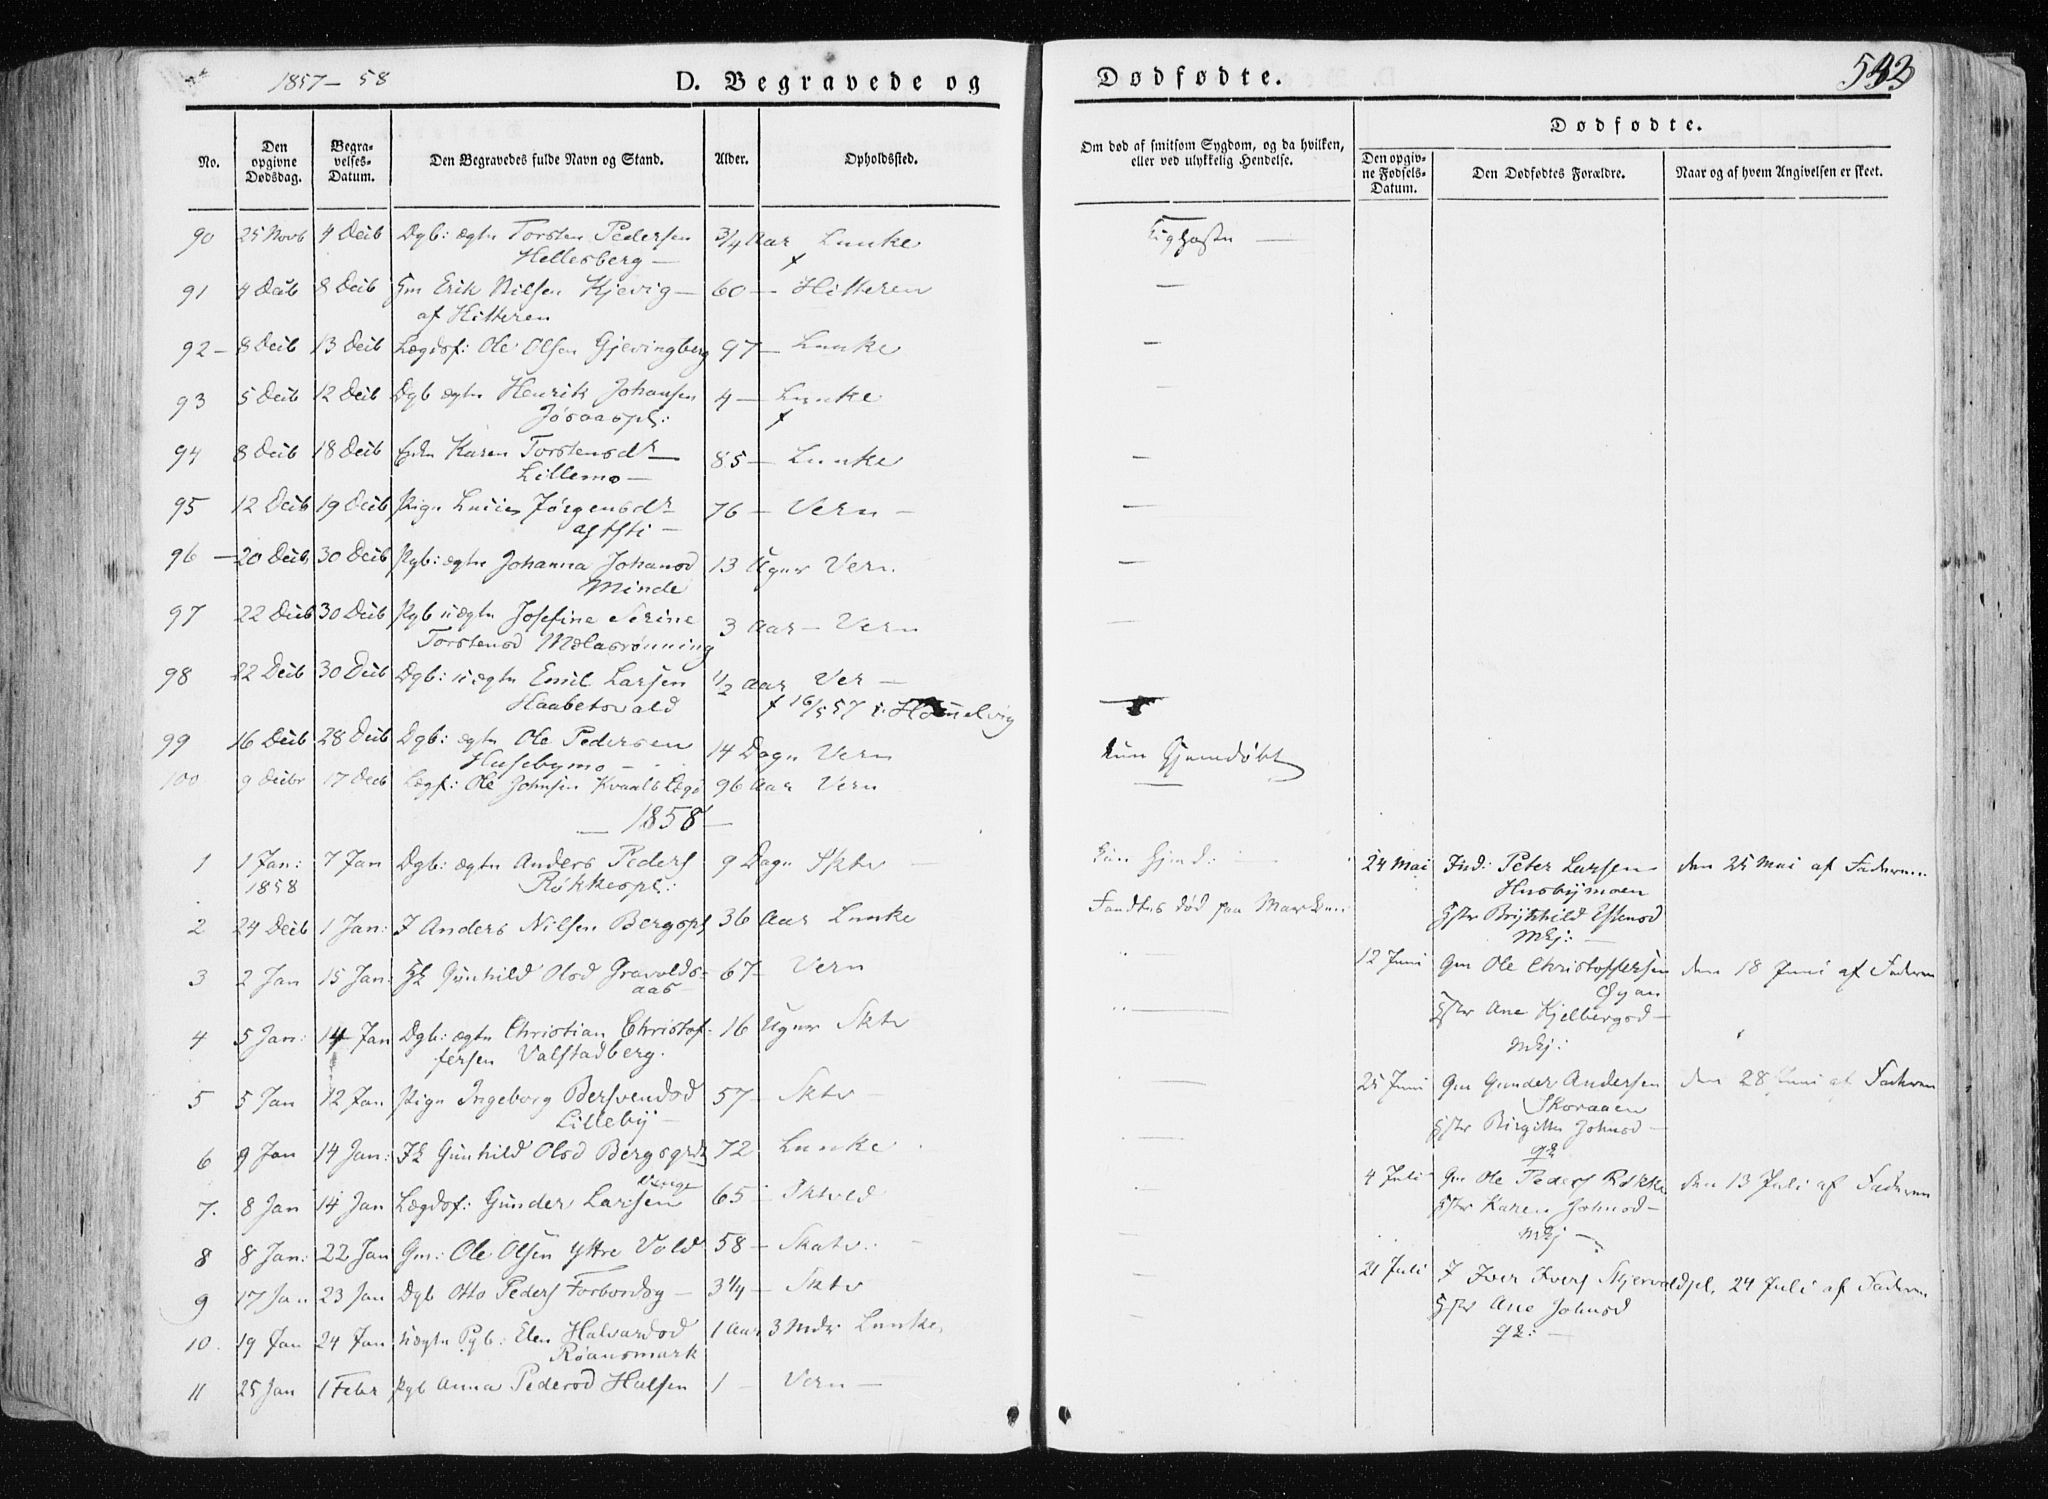 1857-58
D. Begravede og
No.
Den opgivne Dødsdag.
Begravelses-Datum.
Den Begravedes fulde Navn og Stand.
Alder.
Opholdssted.
90 25 Novb 4 Decb Dgb: ægte Torsten Pedersen 3/4 Aar Lunke
Hellesberg —
91 4 Decb 8 Decb Gm Erik Nilsen Kjevig — 60 — Hitteren
af Hitteren
92 — 8 Decb 13 Decb Lægdsf: Ole Olsen Gjevingberg 97 — Lunke
93 5 Decb 12 Decb Dgb ægte Henrik Johansen 4 — Lunke
Jøsaaspl:
94 8 Decb 18 Decb Karen Torstensdr 85 — Lunke
Lillemo —
95 12 Decb 19 Decb Pige Jørgensdr 76 — Vern —
96 — 20 Decb 30 Decb Pgb: ægte Johanna Johansd 13 Uger Vern.
Minde
97 22 Decb 30 Decb Pgb uægte Josefine Serine 3 Aar — Vern
Torstensd Mælasrønning
98 22 Decb 30 Decb Dgb: uægte Emil Larsen 1/2 Aar Ver —
Haabetsvald f 16/5 57 i Hommelvig
99 16 Decb 28 Decb Dgb: ægte Ole Pedersen 14 Dage Vern
Husebymo —
100 9 Decbr 17 Decb Lægf: Ole Johnsen Kvaals Lægd 96 Aar Vern
— 1858 —
1 1 Jan: 7 Jan Dgb: ægte Anders Peders 9 Dage Sktv —
1858 Røkkespl:
2 24 Decb 1 Jan: I Anders Nilsen Bergspl 36 Aar Lunke
3 2 Jan 15 Jan: Gk Gunhild Olsd Gravolds- 67 — Vern
aas —
4 5 Jan: 14 Jan Dgb: ægte Christian Christof- 16 Uger Sktv
fersen Valstadberg.
5 5 Jan 12 Jan Pige Ingeborg Bersvendsd 57 — Sktv —
Lilleby —
6 9 Jan 14 Jan: Ik Gunhild Olsd Bergsgrd 72 Lunke
7. 8 Jan 14 Jan Lægdsf: Gunder Larsen 65 — Sktvld
8 8 Jan: 22 Jan Gm: Ole Olsen Yttre Vold 58 — Skatv: —
9 17 Jan 23 Jan Dgb Otto Peders Forbordsg — 3 1/4 — Sktv
10. 19 Jan 24 Jan uægte Pgb: Elen Halvardsd 1 Aar 3 Mdr Lunke
Røiansmark
11 25 Jan 1 Febr Pgb Anna Pedersd Halsen 1 — Vern —
Dødfødte.
Om død af smitsom Sygdom, og da hvilken, eller ved ulykkelig Hendelse.
Dødfødte.
Den opgivne Fødsels-Datum.
Den Dødfødtes Forældre.
Naar og af hvem Angivelsen er skeet.
Kighoste —
kun Hjemdøbt
kun Hjemd: —
Fandtes død paa Marken
24 Mai Ind: Peter Larsen den 25 Mai af Faderen
Husbymoen
Hstr Brynhild Estensd
Mkj: —
12 Juni Gm Ole Christoffersen den 18 Juni af Faderen
Øyan
Hstr Ane Kjelbergsd —
Mkj:
25 Juni Gm Gunder Andersen den 28 Juni af Faderen
Skoraaen
Hstr Birgitte Johnsd —
4 Juli Gm Ole Peders Røkke den 13 Juli af Faderen
Hstr Karen Johnsd —
Mkj —
21 Juli I Iver Ivers Skjervaldspl. 24 Juli af Faderen
Hstr Ane Johnsd